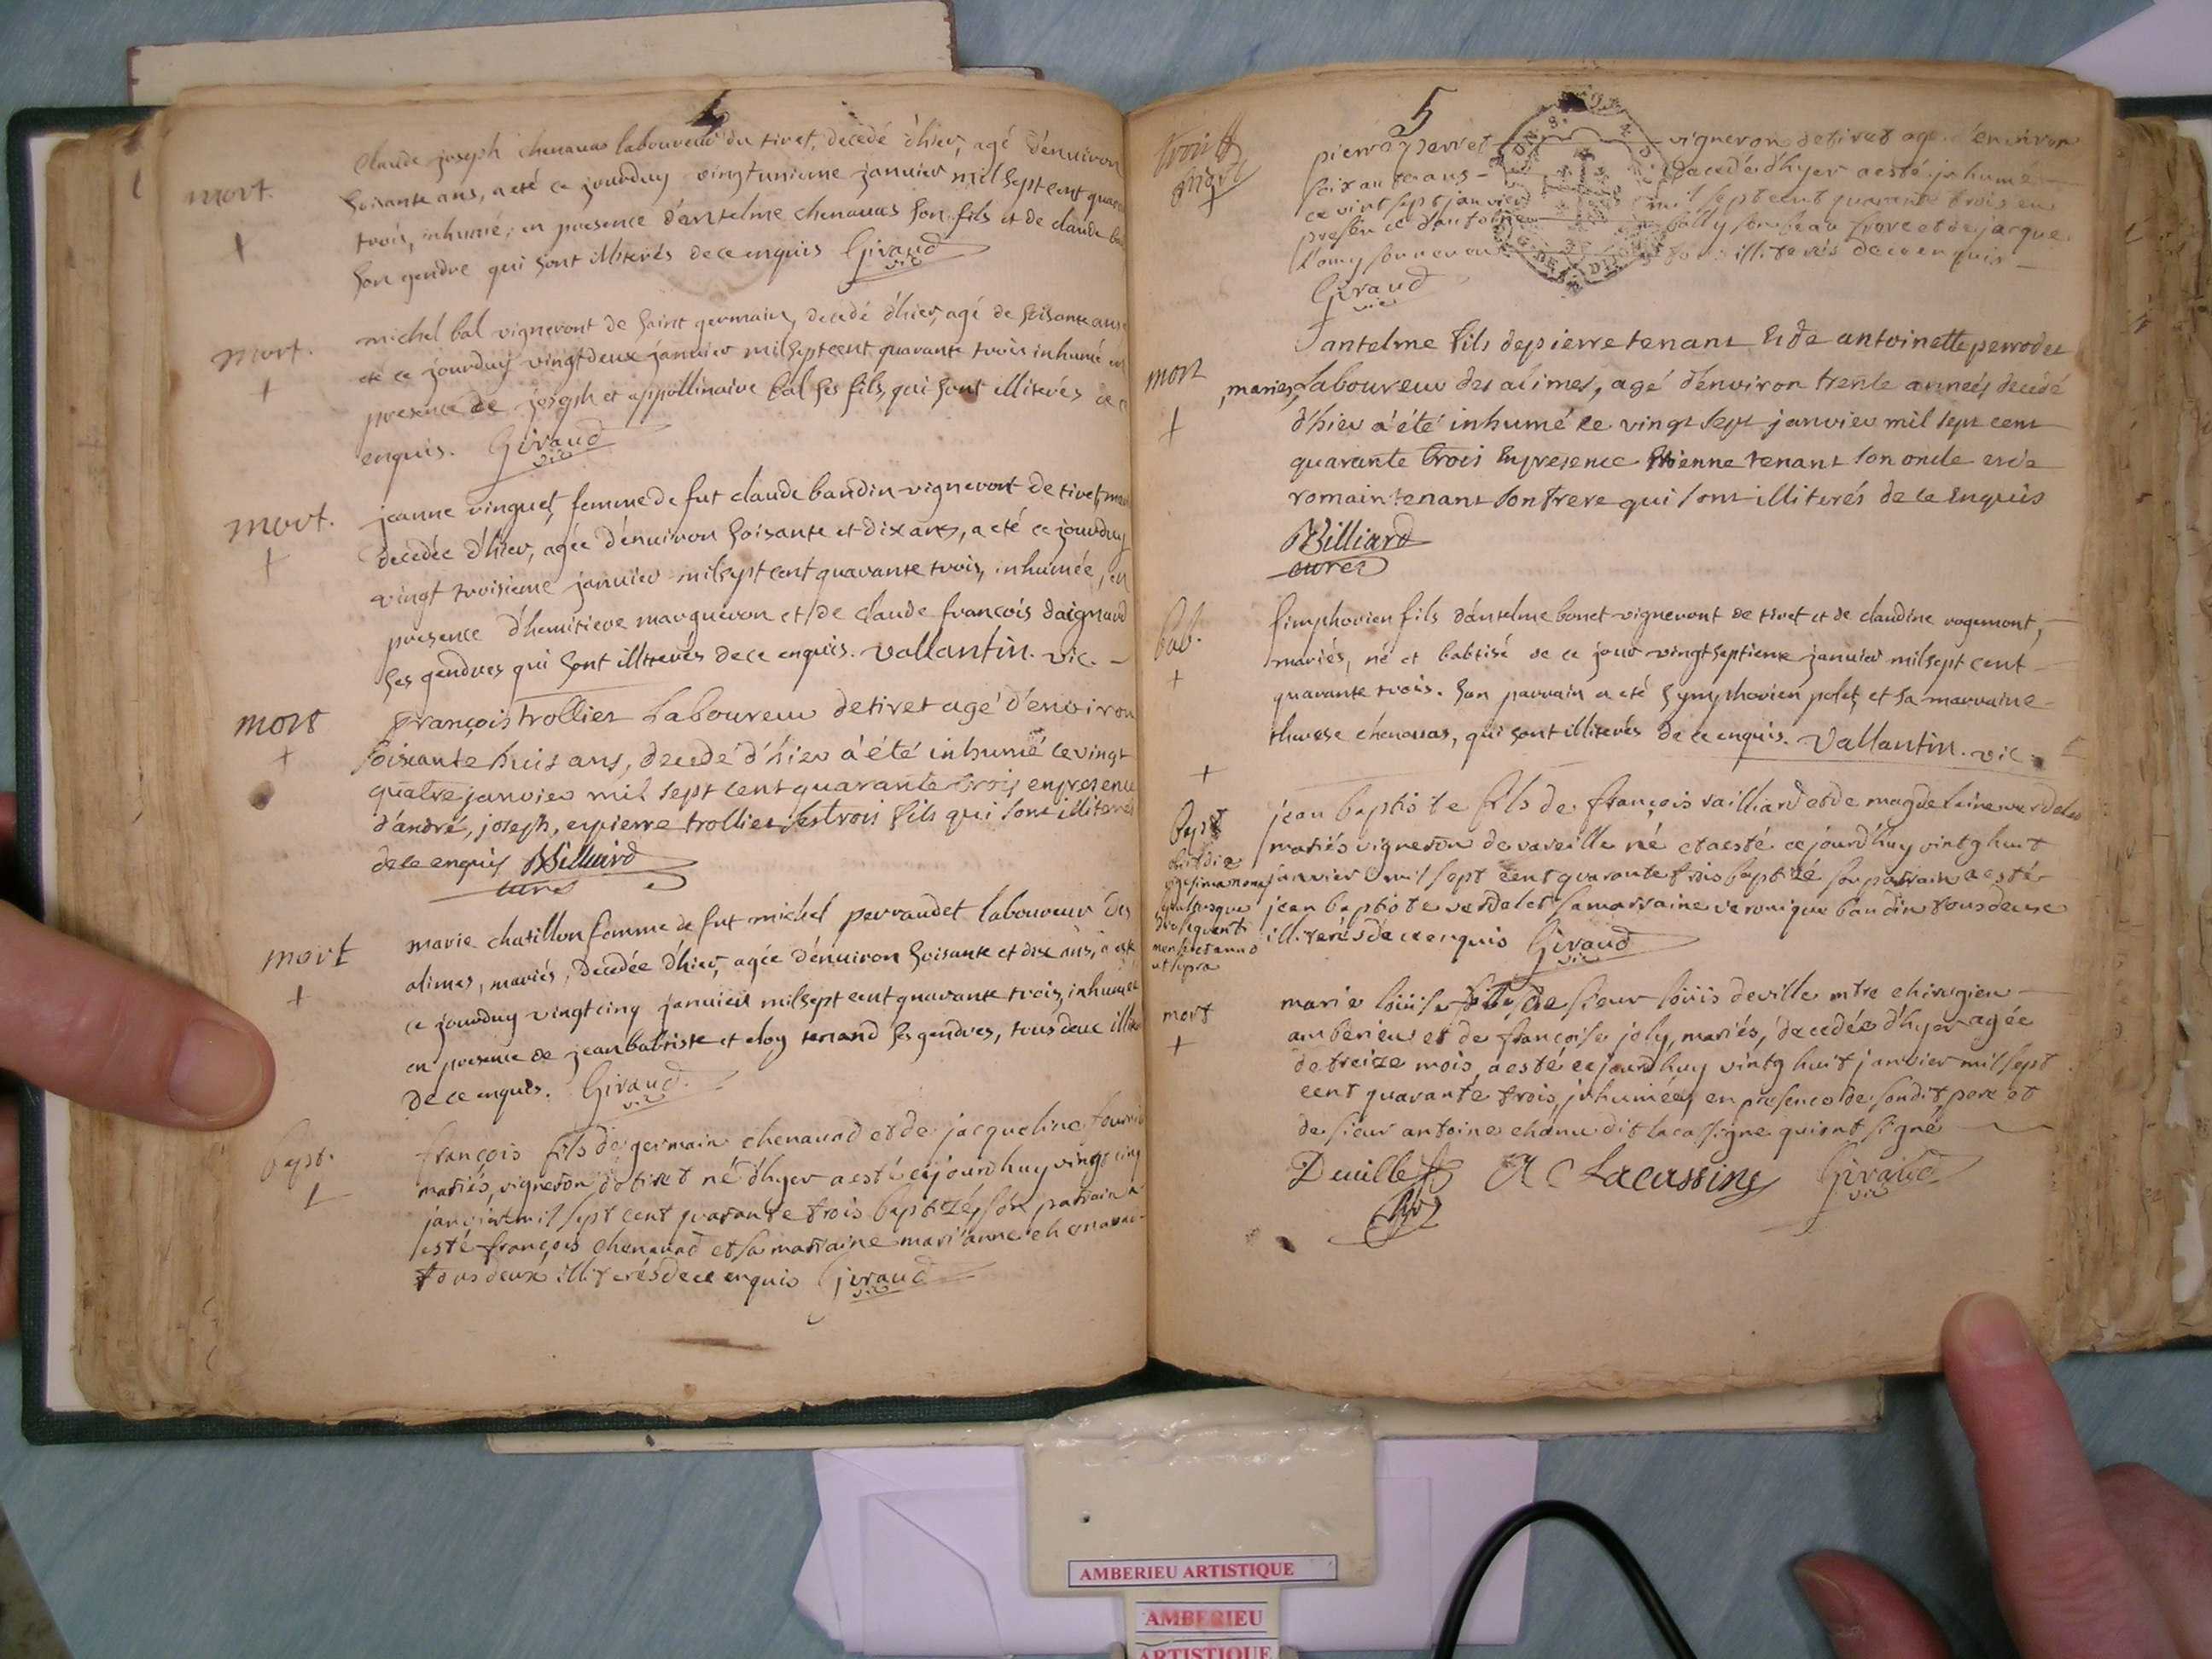 mort.
+
claude joseph chenavas laboureur du tiret, decedé d'hier, agé d'enuiron
soisante ans, a eté ce jourduy vingtunieme januier mil sept cent quara
trois, inhumé, en presence d'antelme chenauas son fils et de claude
son gendre qui sont illiterés de ce enquis Giraud
vic
mort.
+
michel bal vigneront de saint germain, decedé d'hier, agé de soisante ans
eté ce jourduy vingtdeux januier milsept cent quarante trois inhumé en
presence de joseph et appollinaire bal ses fils, qui sont illiterés de c
enquis. Giraud
vic
mort.
+
jeanne vinguet, femme de fut claude baudin vigneront de tiret,
decedée d'hier, agée d'enuiron soisante et dix ans, a eté ce jourduy
vingt troisieme januier milsept cent quarante trois, inhumée, en
presence d'hemitiere marqueron et de claude francois daignaud
ses gendres qui sont illiterés de ce enquis. Vallantin. vic. -
mort
+
françois trollier Laboureur de tiret agé d'environ
soixante huit ans, decedé d'hier a été inhumé ce vingt
quatre janvier mil sept cent quarante trois en presence
d'andré, joseph, et pierre trollier ses trois fils qui sont illiterés
de ce enquis Billiard
curé
mort
+
marie chatillon femme de fut michel perraudet laboureur des
alimes, mariés, decedée d'hier, agée d'enuiron soisante et dix ans, a esté
ce jourduy vingt cinq januier milsept cent quarante trois, inhumée
en presence de jean babtiste et eloy tenand ses gendres, tous deux illit
de ce enquis. Giraud.
vic
bapt.
+
françois fils de germain chenavad et de jacqueline
mariés, vigneron de tiret né d'hyer a esté ce jourd'huy vingt cinq
janvier mil sept cent quarante trois baptizé, son parrain a
esté françois chenavad et sa marraine mari'anne chenavad
tous deux illiterés de ce enquis Giraud
vic
5
mort
+
pierre perret vigneron de tiret agé d'environ
soixante ans - decedé d'hyer a esté inhumé
ce vint sept janvier mil sept cent quarante trois en
presence d'antoine bally son beau frere et de jacque
Lamy son neveu illiterés de ce enquis
Giraud
vic
mort
+
antelme fils de pierre tenant et de antoinette perrodet
mariés, Laboureur des alimes, agé d'environ trente années decedé
d'hier a été inhumé ce vingt sept janvier mil sept cent
quarante trois en presence Etienne tenant son oncle et de
romain tenant son frere qui sont illiterés de ce enquis
Billiard
curé
bab.
+
simphorien fils d'antelme bonet vigneront de tiret et de claudine rogemont,
mariés, né et babtisé de ce jour vingtseptieme januier milsept cent
quarante trois. son parrain a eté symphorien polet, et sa marraine
therese chenauas, qui sont illiterés de ce enquis. Vallantin. vic.
+
Bapt
obiit die
vigesima nona
ejusdemque
mensis et anno
ut supra
jean baptiste fils de françois railliard et de magdelaine verdelet
mariés vigneron de vareille né et a esté ce jourd'huy vintg huit
janvier mil sept cent quarante trois baptizé son parrain a esté
jean baptiste verdelet sa marraine veronique baudin tous deux
illiterés de ce enquis Giraud
vic
mort
+
marie loüise fille de sieur loüis deville mtre chirugien
amberieu et de françoise joly, mariés, decedée d'hyer agée
de treize mois, a esté ce jourd'huy vintg huit janvier mil sept
cent quarante trois, inhumée, en presence de son dit pere et
de sieur antoine chanu dit lacasigne qui ont signé
Deuille A C Lacassine Giraud
vic
AMBERIEU ARTISTIQUE
AMBERIEU
ARTISTIQUE